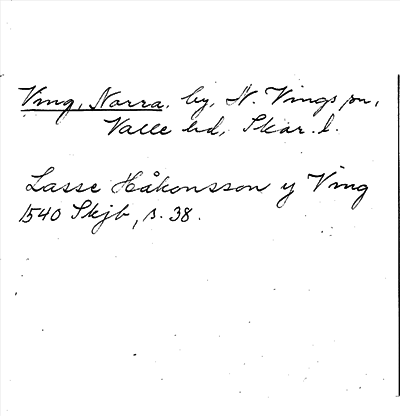 Ving, Norra, by, N. Vings sn,
Valle hd, Skar. l.
Lasse Håkonsson y Ving
1540 Skjb, s. 38.